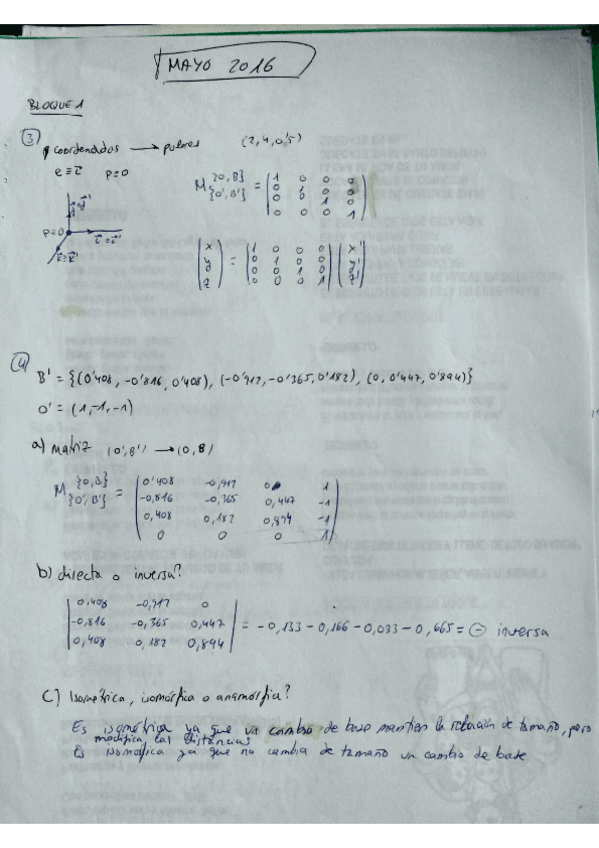 MAYO 2016
BLOQUE 1
③ coordenadas → polares (2,4,0'5)
P=0
M {0,B} {0',B'} = 1 0 0 0
0 1 0 0
0 0 1 0
0 0 0 1
P=0
x y z = 1 0 0 0 x'
0 1 0 0 y'
0 0 1 0 z'
0 0 0 1
④
B' = {(0'408, -0'816, 0'408), (-0'912, -0'365, 0'182), (0, 0'447, 0'894)}
0' = (1,-1,-1)
a) matriz (0',B') → (0,B)
M {0,B} {0',B'} = 0'408 -0,912 0 1
-0,816 -0,365 0,447 -1
0,408 0,182 0,894 -1
0 0 0 1
b) directa o inversa?
0,408 -0,912 0
-0,816 -0,365 0,447
0,408 0,182 0,894
= -0,133 - 0,166 - 0,033 - 0,665 = ⊖ inversa
c) Isométrica, isomórfica o anamórfica?
Es isométrica ya que un cambio de base mantien la relación de tamaño, pero
modifica las distancias
Es isomorfica ya que no cambia de tamaño un cambio de base